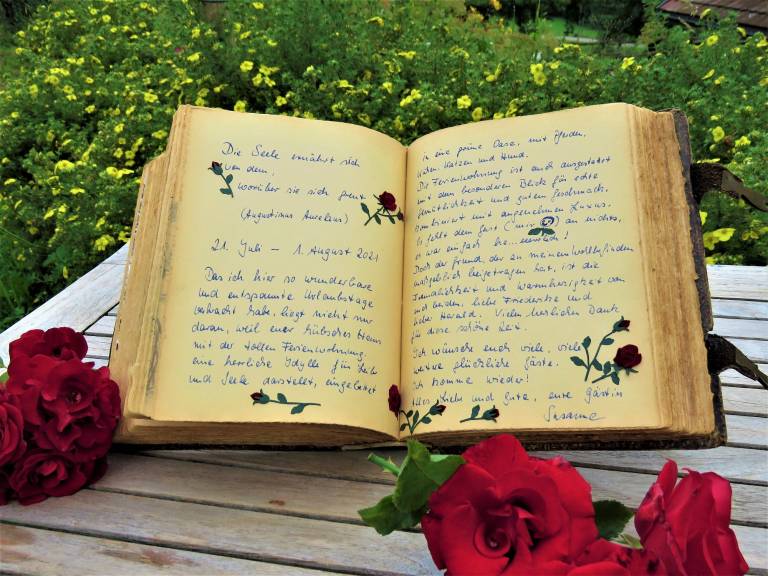 Die Seele ernährt sich
von dem,
worüber sie sich freut
(Augustinus Aurelius)
21. Juli - 1. August 2021
Das ich hier so wunderbare
und entspannte Urlaubstage
verbracht habe, liegt nicht nur
daran, weil euer hübsches Haus
mit der tollen Ferienwohnung,
eine herrliche Idylle für Leib
und Seele darstellt, eingebettet
in eine grüne Oase, mit Pferden,
Katzen und Hund.
Die Ferienwohnung ist auch ausgestattet
mit dem besonderen Blick für echte
Gemütlichkeit und guten Geschmack.
Kombiniert mit angenehmen Luxus.
Es fehlt dem Gast (mir) an nichts,
es war einfach
Doch der Grund, der zu meinem Wohlbefinden
maßgeblich beigetragen hat, ist die
und Warmherzigkeit von
euch beiden, liebe Friederike und
lieber Harald. Vielen herzlichen Dank
für diese schöne Zeit.
Ich wünsche euch viele, viele
weitere glückliche Gäste.
Ich komme wieder!
Alles Liebe und Gute, eure Gästin
Susanne